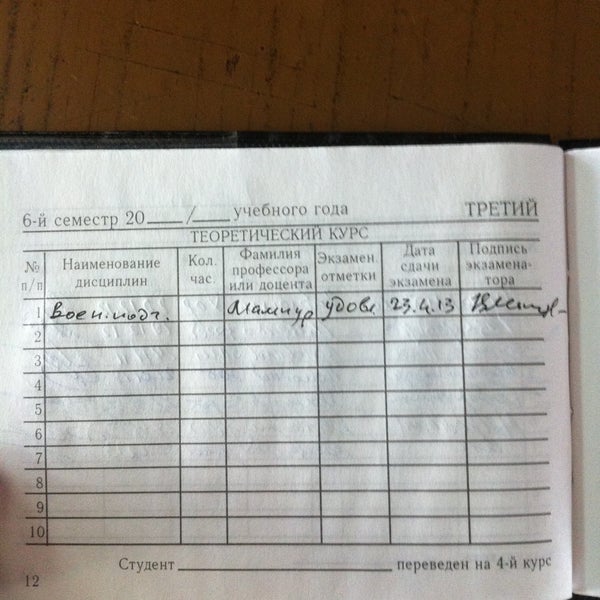 6-й семестр 20____/____ учебного года ТРЕТИЙ
ТЕОРЕТИЧЕСКИЙ КУРС
№ п/п Наименование дисциплин Кол. час. Фамилия профессора или доцента Экзамен. отметки Дата сдачи экзамена Подпись экзамена- тора
1 Воен. подг. удовл 23.4.13
2
3
4
5
6
7
8
9
10
Студент ____ переведен на 4-й курс
12